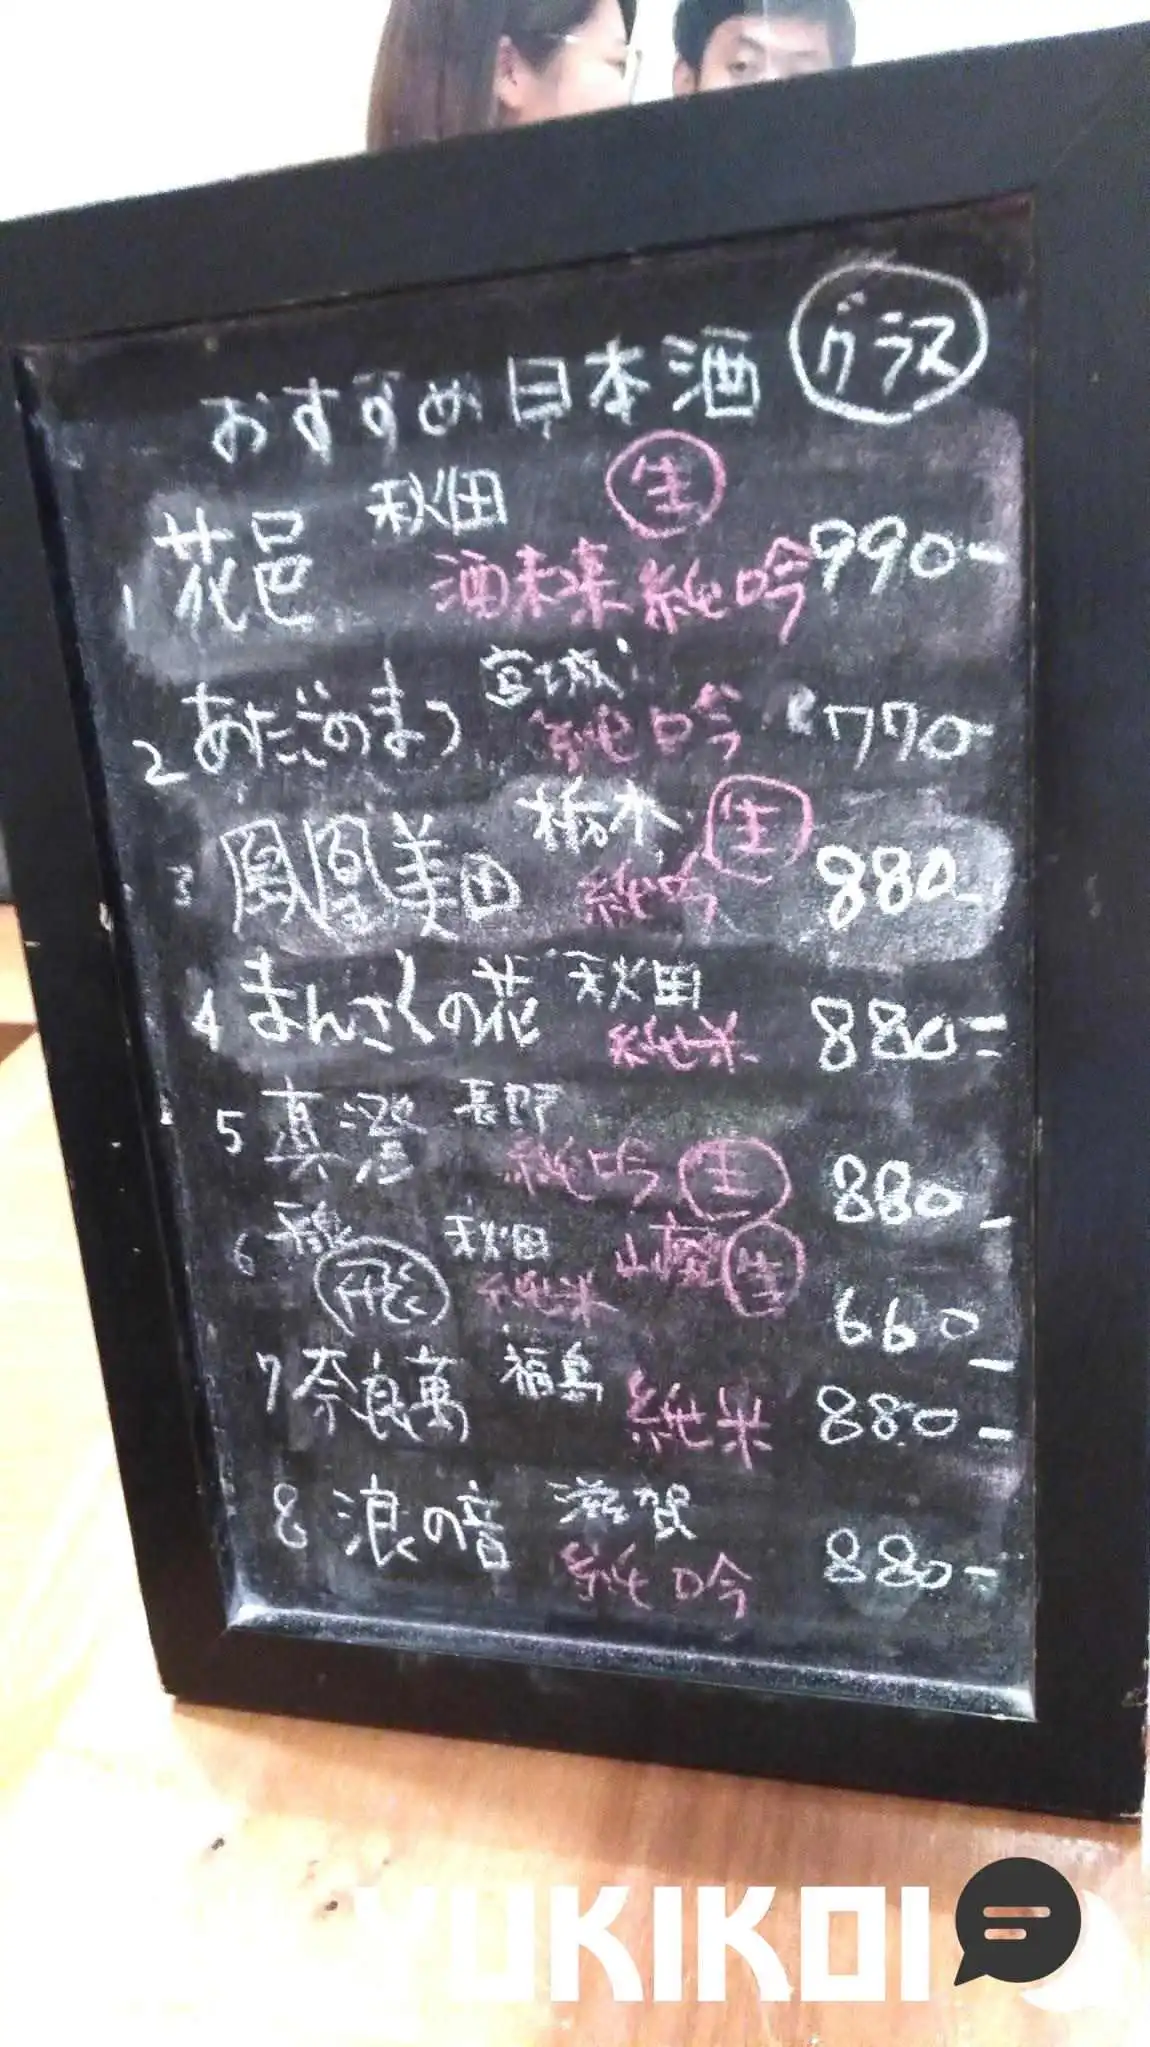 おすすめ日本酒 グラス
秋田 生
1 花邑 酒未来 純吟 990-
宮城
2 あたごのまつ 純吟 770-
栃木 生
3 鳳凰美田 純吟 880-
4 まんさくの花 秋田 純米 880-
5 真澄 長野 純吟 生 880-
6 秋田 山廃 生
飛 純米 660-
7 奈良萬 福島 純米 880-
8 浪の音 滋賀
純吟 880-
YUKIKOI